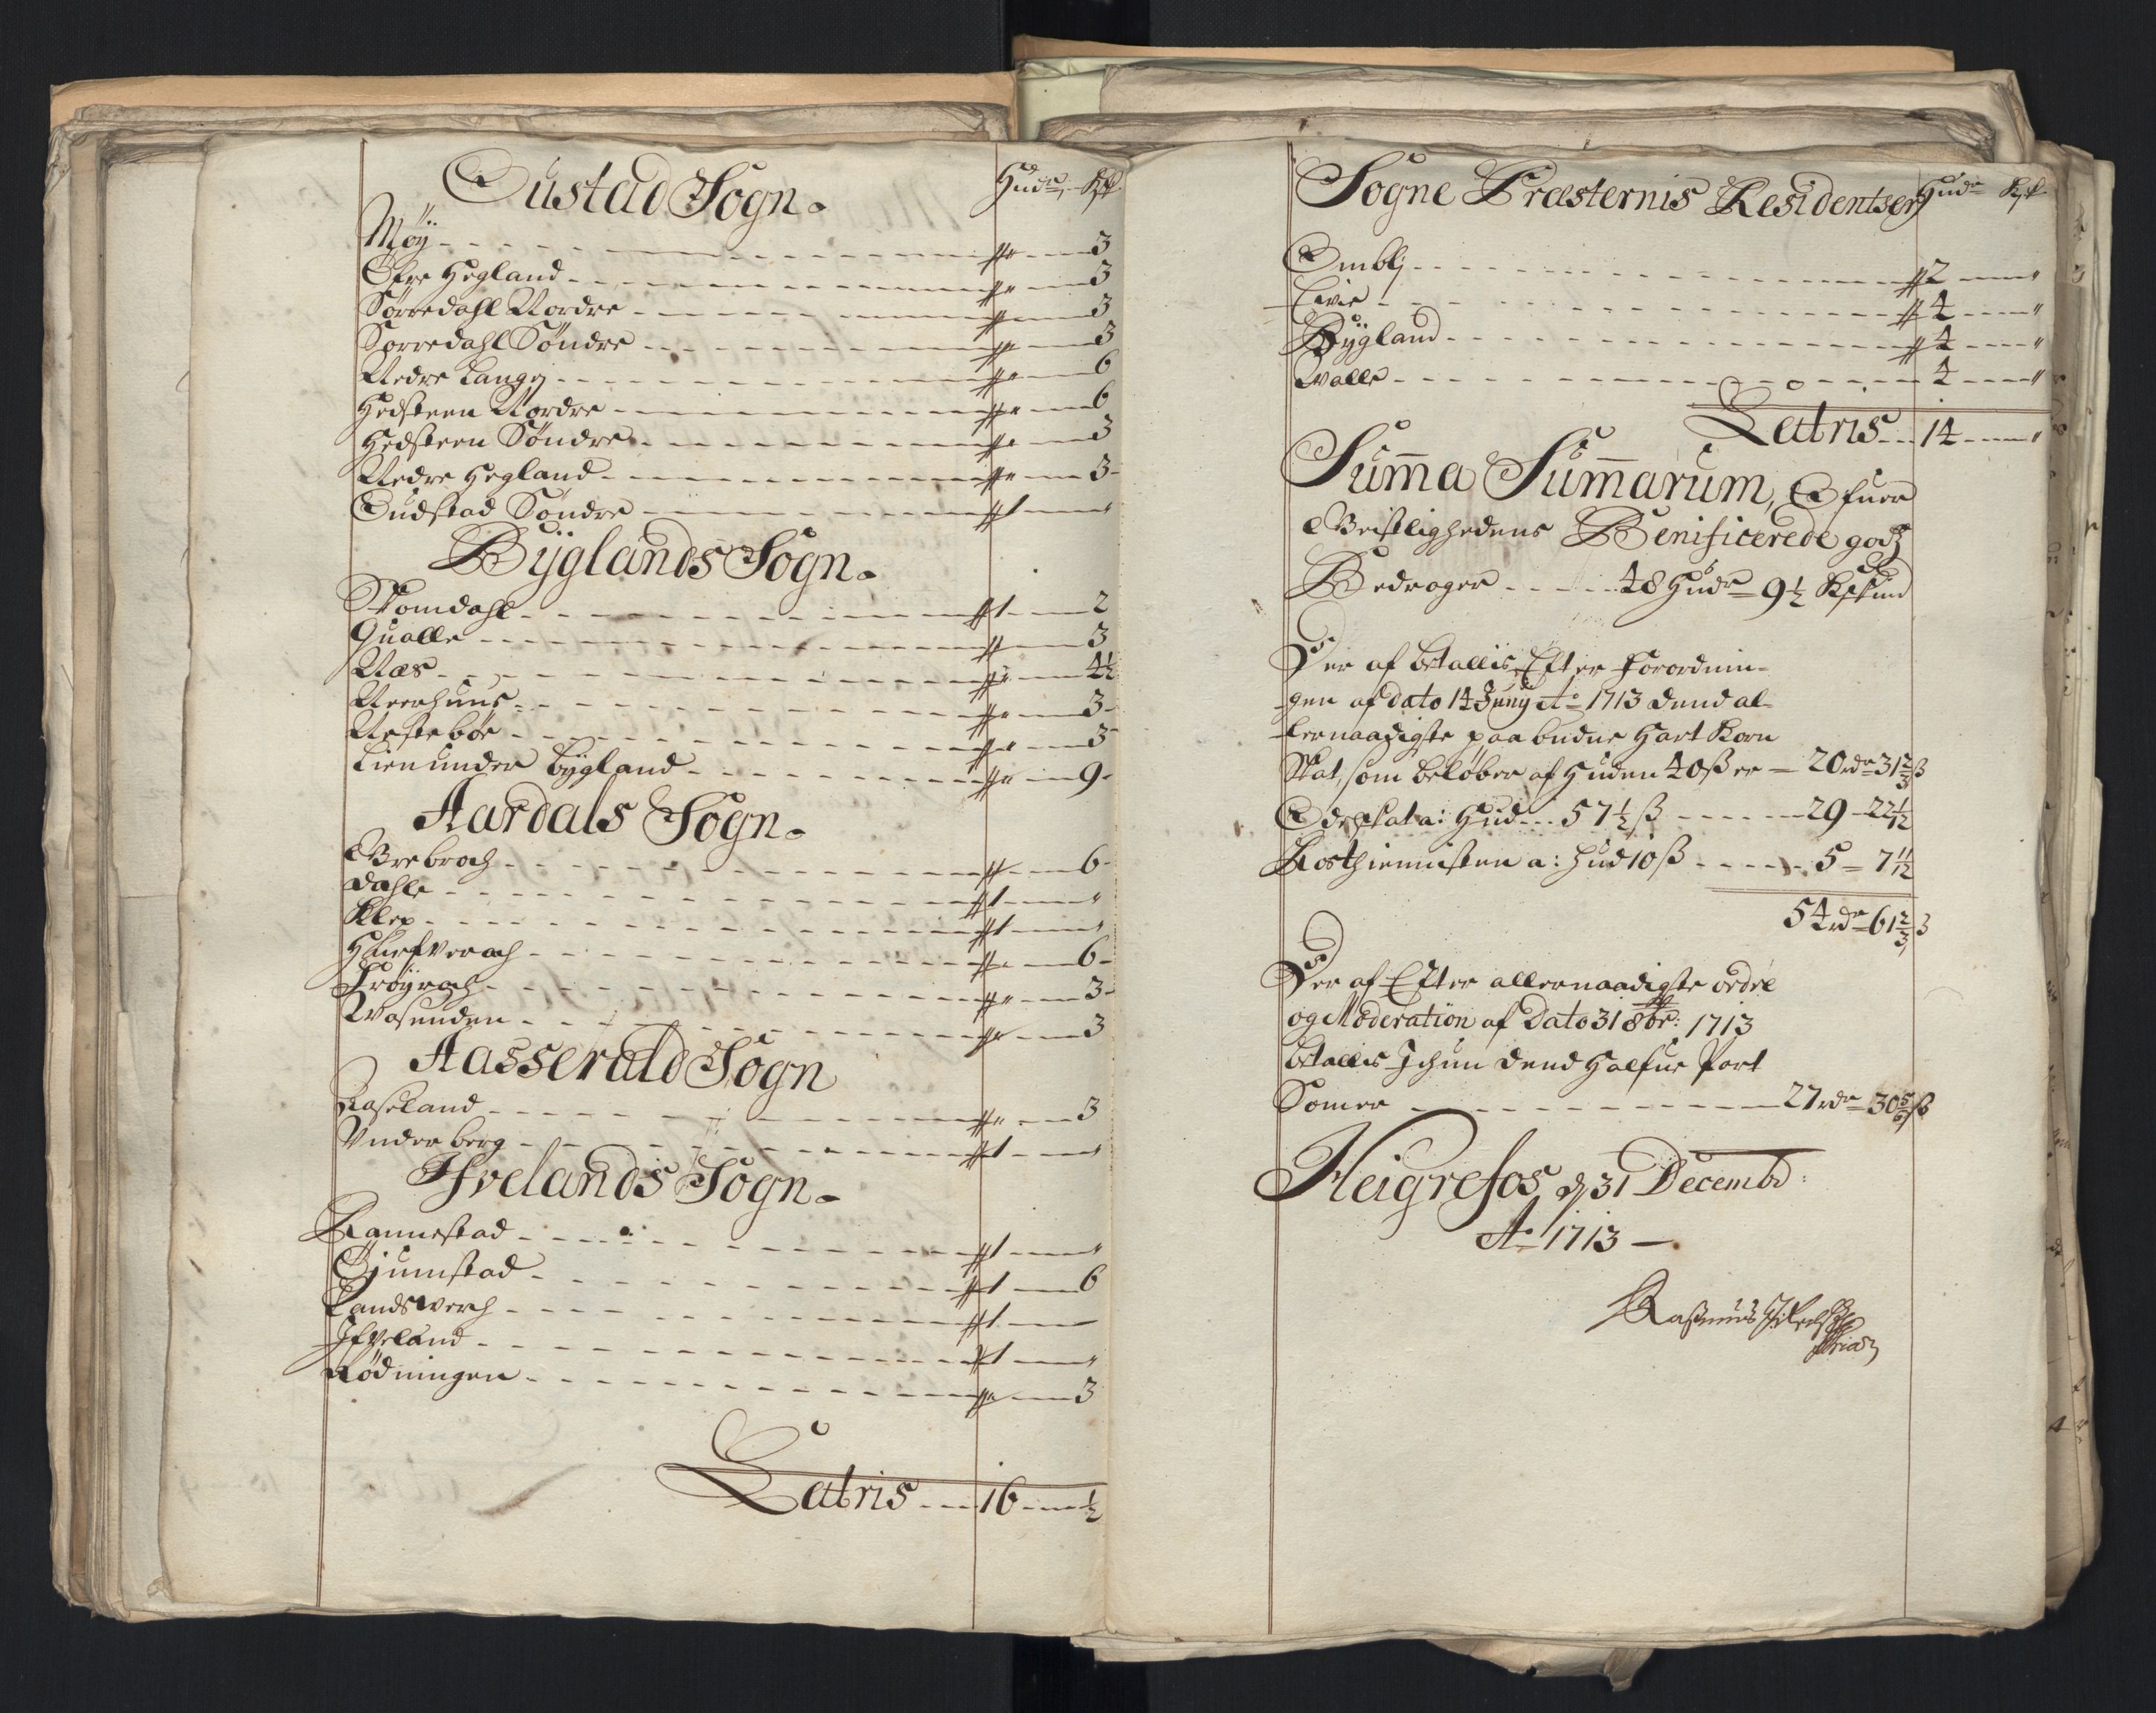 Oustad Sogn. Hudr, Ksk.
Møÿ - - - - - " - 3
Ofre Hegland - - - " - 3
Sørredahl Nordre - - - " - 3
Sørredahl Søndre - - - " - 3
Nedre Langej - - - " - 6
Hodsteen Nordre - - - " - 6
Hedsteen Søndre - - - " - 3
Nedre Hegland - - - " - 3
Oudstad Søndre - - - 1 - "
Bÿglands Sogn.
Skomdahl - - - 1 - 2
Qualle - - - " - 3
Næs - - - " - 4½
Neerhuus - - - " - 3
Nestebøe - - - " - 3
Lien under Bÿgland - - - " - 9
Aardals Sogn.
Grebroch - - - " - 6
Dahle - - - 1 - "
Klep - - - 1 - "
- - - " - 6
Frøÿrach - - - " - 3
Wasenden - - - " - 3
Aasserald Sogn
Roseland - - - " - 3
Vnderberg - - - 1 - "
Ifvelands Sogn.
Rannestad - - - 1 - "
Djunestad - - - 1 - 6
Landswerch - - - 1 -
Ifveland - - - 1 - "
Rødningen - - - " - 3
Latris - - 16 - ½
Sogne Præsternis Residentser Hudr Ksk.
Omblj - - - 2 - "
Evie - - - 4 - "
Bÿgland - - - 4 - "
Walle - - - 4 - "
Latris - - 14 - "
Sum̄a Sum̄arum, Ofuer
Geistlighedens Benificerede godz
Bedrager - - - 48 Hudr 9½ Kskind
Der af betallis Efter Forordnin-
gen af dato 14 Junÿ Ao 1713 dend al-
lernaadigste paabudne Hart Korn
Skat, som beløber af Huden 40 ß er - 20 rdr 31⅔ ß
Odelskat a: Hud - 57½ ß - - - 29 - 22 1/12
Rosthienisten a: Hud 10 ß - - - 5 - 7 11/12
54 rdr 61⅔ ß
Der af Efter allernaadigste ordre
og Moderation af Dato 31 8br: 1713
betallis Ichun dend Halfue Part
Som er - - - 27 rdr 30⅚ ß
Heigrefos d 31 Decembr:
Ao 1713 -
Rasmus